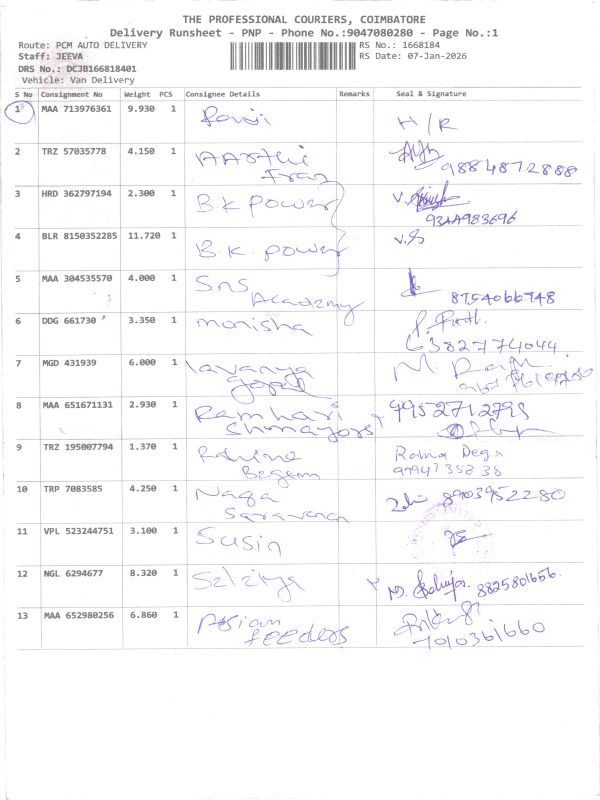 THE PROFESSIONAL COURIERS, COIMBATORE
Delivery Runsheet - PNP - Phone No.:9047080280 - Page No.:1
Route: PCM AUTO DELIVERY RS No.: 1668184
Staff: JEEVA RS Date: 07-Jan-2026
DRS No.: DCJB166818401
Vehicle: Van Delivery
S No Consignment No Weight PCS Consignee Details Remarks Seal & Signature
1 MAA 713976361 9.930 1 H/R
2 TRZ 57035778 4.150 1 AArthi 9884872888
3 HRD 362797194 2.300 1 BK power
4 BLR 8150352285 11.720 1 B.K. power V.S
5 MAA 304535570 4.000 1 SNS
Academy 8754066748
6 DDG 661730 3.350 1 monisha
6382774044
7 MGD 431939 6.000 1 lavanya
8 MAA 651671131 2.930 1 Ramhari 9952712795
9 TRZ 195007794 1.370 1
Begam
10 TRP 7083585 4.250 1 Naga 8903952280
Saravanan
11 VPL 523244751 3.100 1 Susin
12 NGL 6294677 8.320 1 8825801656.
13 MAA 652980256 6.860 1 Asian
feeders 7010361660